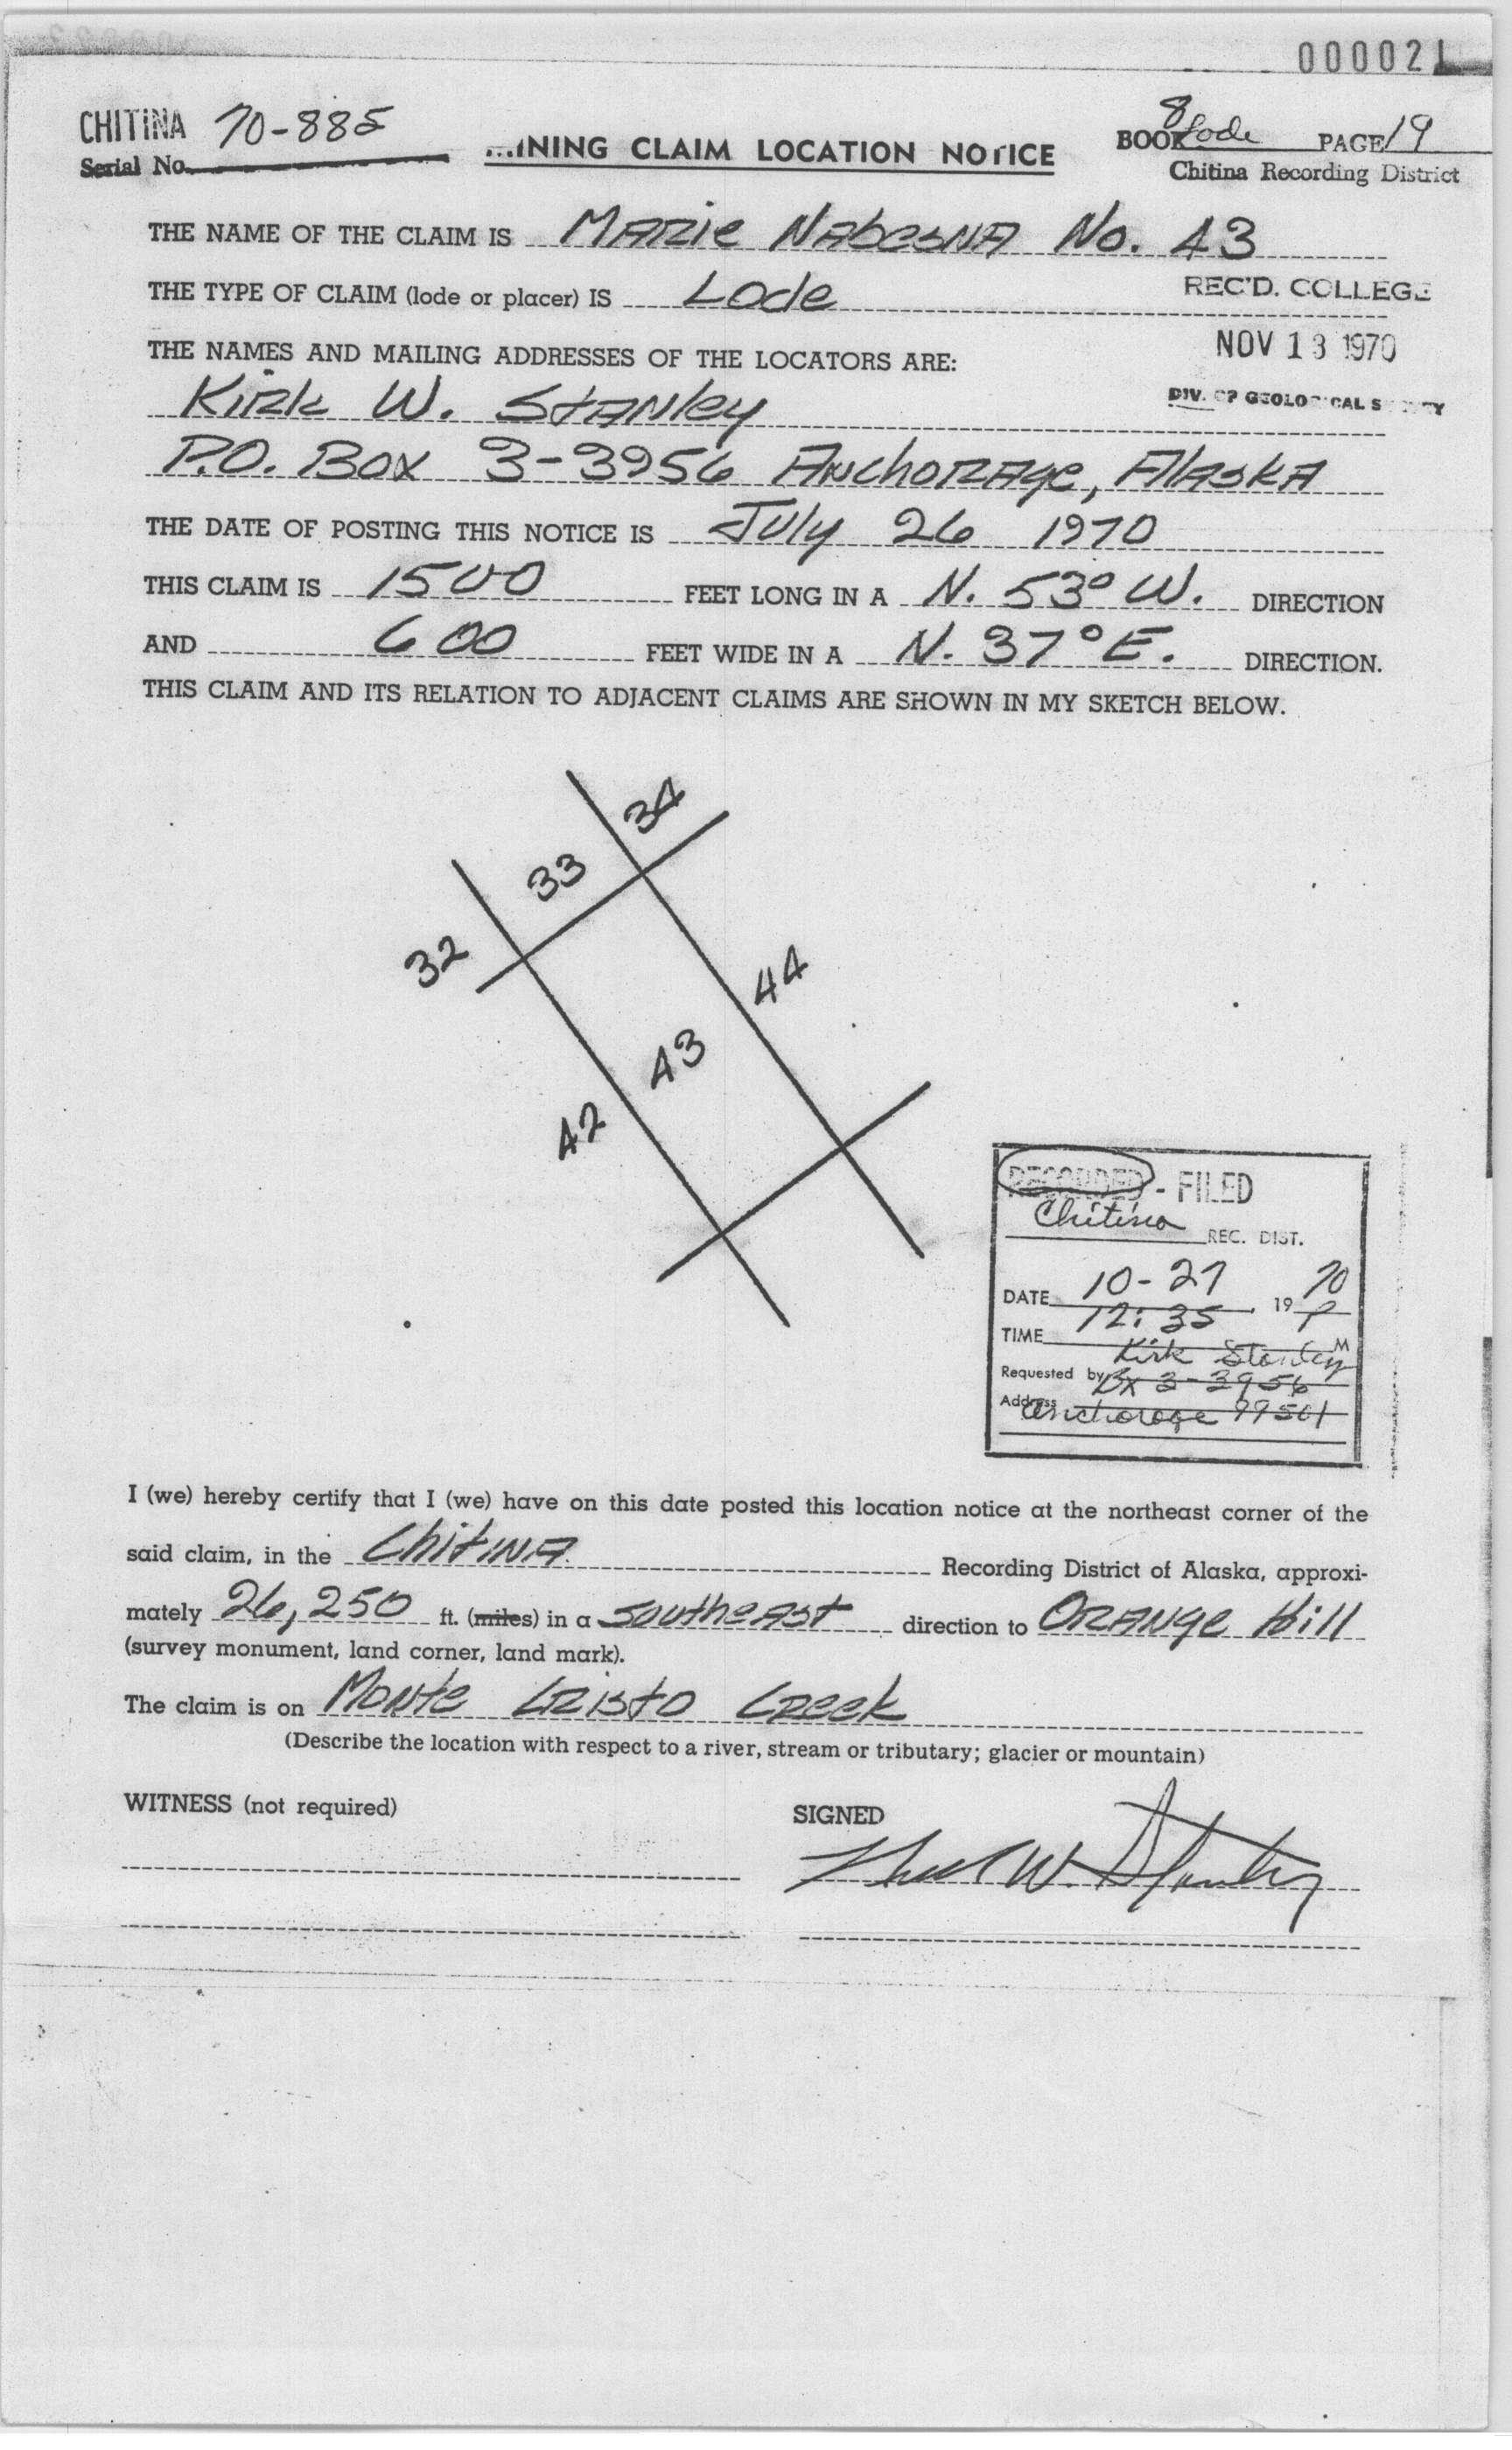 000021
CHITINA 70-885
Serial No.
MINING CLAIM LOCATION NOTICE
BOOK 8 Lode PAGE 19
Chitina Recording District
THE NAME OF THE CLAIM IS Marie Nabesna No. 43
THE TYPE OF CLAIM (lode or placer) IS Lode
REC'D. COLLEGE
NOV 13 1970
DIV. OF GEOLOGICAL SURVEY
THE NAMES AND MAILING ADDRESSES OF THE LOCATORS ARE:
Kirk W. Stanley
P.O. Box 3-3956 Anchorage, Alaska
THE DATE OF POSTING THIS NOTICE IS July 26 1970
THIS CLAIM IS 1500 FEET LONG IN A N. 53° W. DIRECTION
AND 600 FEET WIDE IN A N. 37° E. DIRECTION.
THIS CLAIM AND ITS RELATION TO ADJACENT CLAIMS ARE SHOWN IN MY SKETCH BELOW.
34
33
32
44
43
42
RECORDED - FILED
Chitina REC. DIST.
DATE 10-27 1970
TIME 12:35 P M
Requested by Kirk Stanley
Address Bx 3-3956
Anchorage 99501
I (we) hereby certify that I (we) have on this date posted this location notice at the northeast corner of the
said claim, in the Chitina Recording District of Alaska, approxi-
mately 26,250 ft. (miles) in a southeast direction to Orange Hill
(survey monument, land corner, land mark).
The claim is on Monte Cristo Creek
(Describe the location with respect to a river, stream or tributary; glacier or mountain)
WITNESS (not required)
SIGNED
Kirk W. Stanley